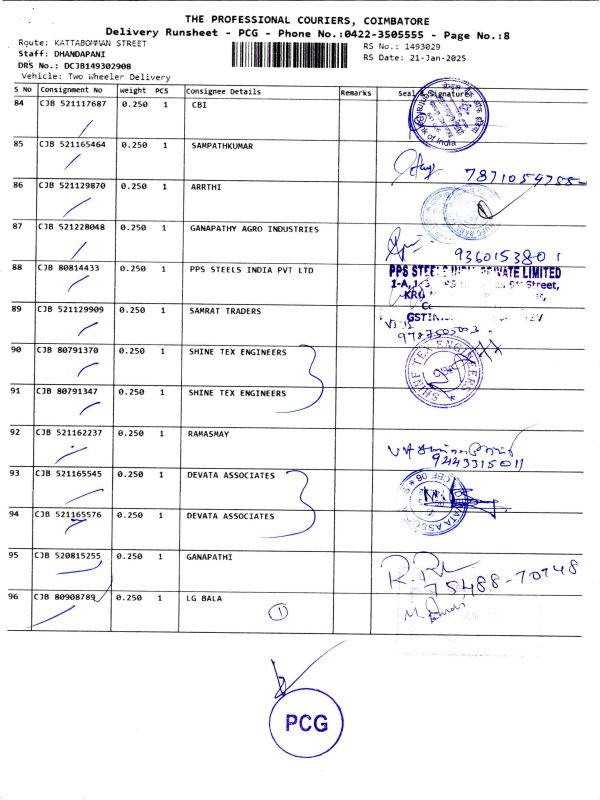 THE PROFESSIONAL COURIERS, COIMBATORE
Delivery Runsheet - PCG - Phone No.:0422-3505555 - Page No.:8
Route: KATTABOMMAN STREET
RS No.: 1493029
Staff: DHANDAPANI
RS Date: 21-Jan-2025
DRS No.: DCJB149302908
Vehicle: Two Wheeler Delivery
S No Consignment No Weight PCS Consignee Details Remarks Seal & Signature
84 CJB 521117687 0.250 1 CBI
Bank of India
85 CJB 521165464 0.250 1 SAMPATHKUMAR
7871054788
86 CJB 521129870 0.250 1 ARRTHI
87 CJB 521228048 0.250 1 GANAPATHY AGRO INDUSTRIES
9360153801
88 CJB 80814433 0.250 1 PPS STEELS INDIA PVT LTD
PPS STEELS INDIA PRIVATE LIMITED
Street,
89 CJB 521129909 0.250 1 SAMRAT TRADERS
9787505003
90 CJB 80791370 0.250 1 SHINE TEX ENGINEERS
SHINE TEX ENGINEERS
91 CJB 80791347 0.250 1 SHINE TEX ENGINEERS
92 CJB 521162237 0.250 1 RAMASMAY
9443315011
93 CJB 521165545 0.250 1 DEVATA ASSOCIATES
DEVATA ASSOCIATES
94 CJB 521165576 0.250 1 DEVATA ASSOCIATES
95 CJB 520815255 0.250 1 GANAPATHI
75488-70748
96 CJB 80908789 0.250 1 LG BALA
1
PCG